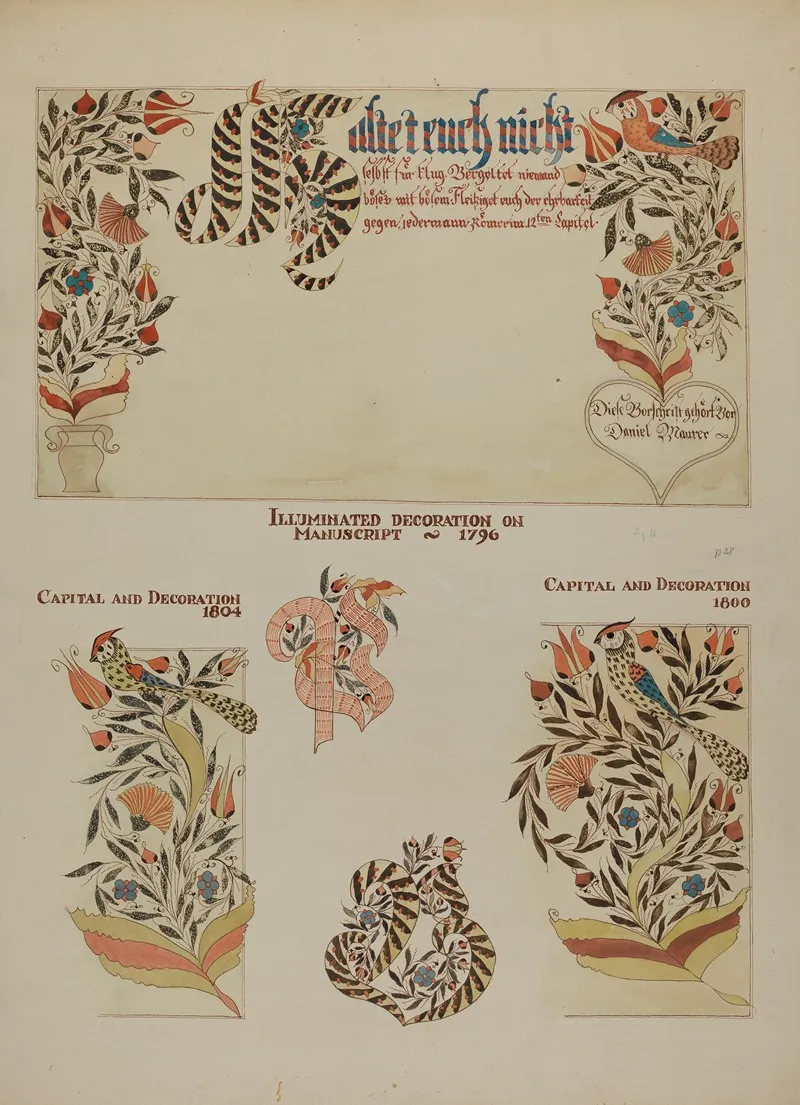 Haltet euch nicht
selbst für klug. Vergeltet niemand
böses mit bösem. Fleisiget euch der ehrbarkeit
gegen jedermann. Römer im 12ten Capitel.
Diese Vorschrift gehört Vor
Daniel Maurer ~
ILLUMINATED DECORATION ON
MANUSCRIPT ~ 1796
p 28
CAPITAL AND DECORATION
1804
CAPITAL AND DECORATION
1800